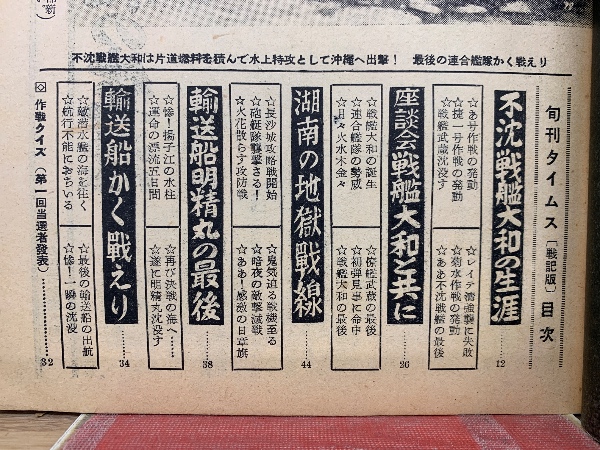 不沈戦艦大和は片道燃料を積んで水上特攻として沖縄へ出撃! 最後の連合艦隊かく戦えり
旬刊タイムス〔戦記版〕目次
不沈戦艦大和の生涯……12
☆あ号作戦の発動
☆捷一号作戦の発動
☆戦艦武蔵沈没す
☆レイテ湾強襲に失敗
☆菊水作戦の発動
☆あゝ不沈戦艦の最後
座談会戦艦大和と共に……26
☆戦艦大和の誕生
☆連合艦隊の勢威
☆月々火水木金々
☆僚艦武蔵の最後
☆初弾見事に命中
☆戦艦大和の最後
湖南の地獄戰線……44
☆長沙城攻略戦開始
☆砲艇隊襲撃さる!
☆火花散らす攻防戦
☆鬼気迫る戦機至る
☆暗夜の敵撃滅戦
☆ああ!感激の日章旗
輸送船明精丸の最後……38
☆惨!揚子江の水柱
☆運命の漂流五日間
☆再び決戦の海へ……
☆遂に明精丸沈没す
輸送船かく戰えり……34
☆敵潜水艦の海を往く
☆航行不能におちいる
☆最後の輸送船の出航
☆惨!一瞬の沈没
◇作戦クイズ(第一回当選者發表)……32